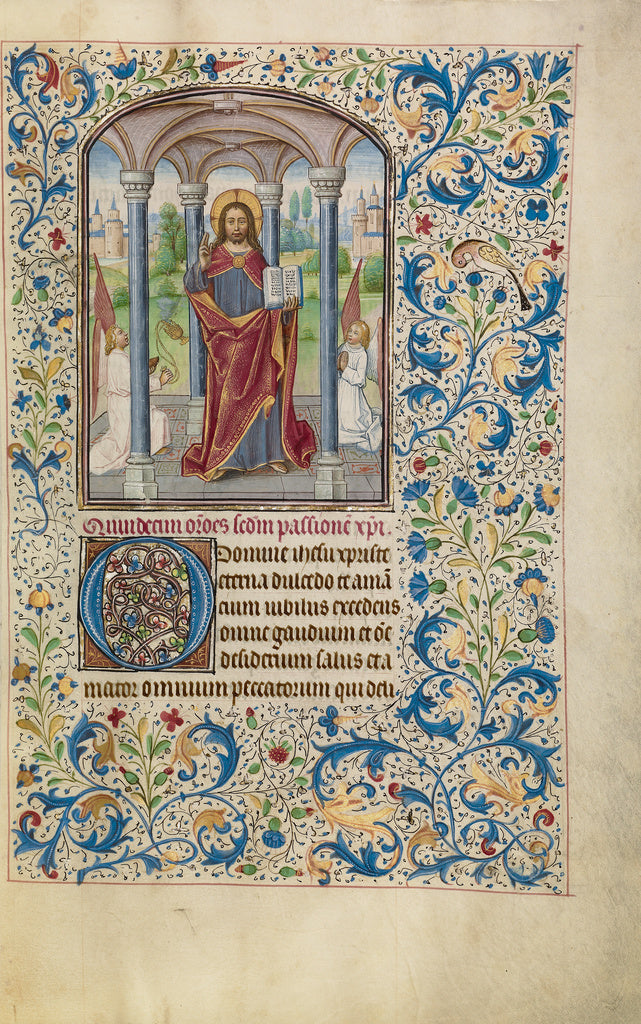 Quindecim or̄oes scd̄m passionē xp̄i.
O Domine ihesu xpriste
eterna dulcedo et amā
cium iubilus excedens
omne gaudium et ōē
desiderium salus et a
mator omnium peccatorum qui deli